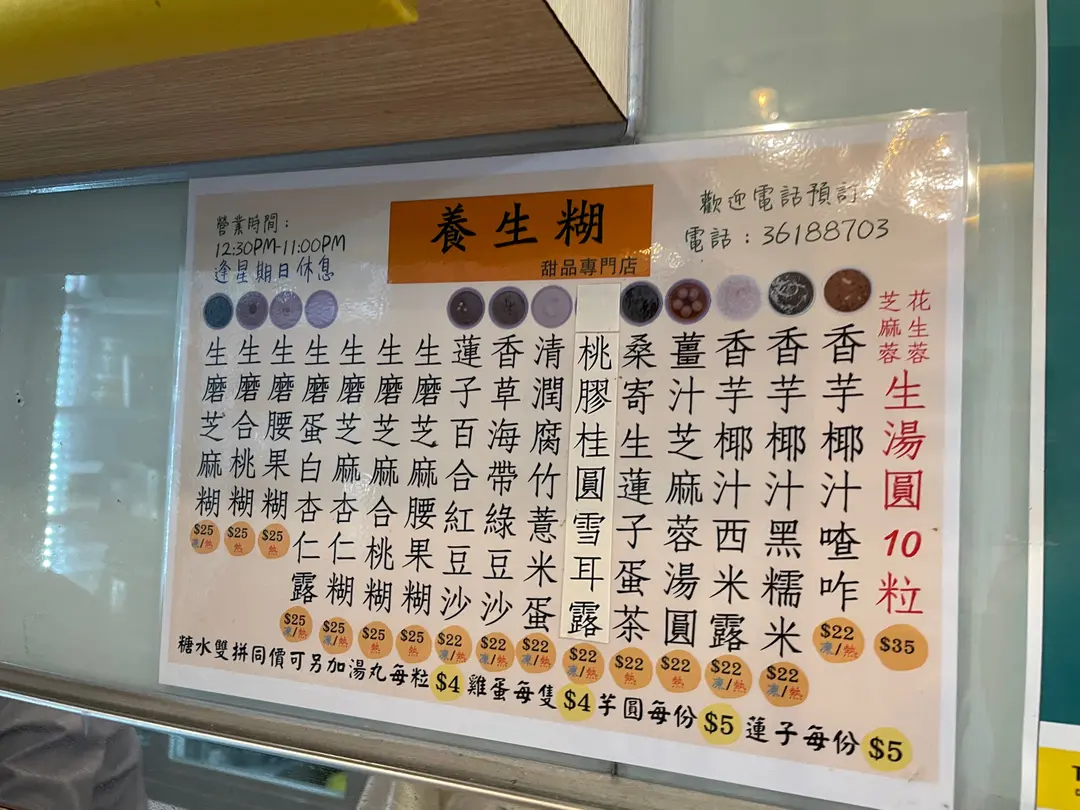 營業時間：
12:30PM-11:00PM
逢星期日休息
養生糊
甜品專門店
歡迎電話預訂
電話：36188703
花生蓉
芝麻蓉
生湯圓10粒
$35
香芋椰汁喳咋
$22
凍/熱
香芋椰汁黑糯米
$22
凍/熱
香芋椰汁西米露
$22
凍/熱
薑汁芝麻蓉湯圓
$22
熱
桑寄生蓮子蛋茶
$22
熱
桃膠桂圓雪耳露
$22
凍/熱
清潤腐竹薏米蛋
$22
凍/熱
香草海帶綠豆沙
$22
凍/熱
蓮子百合紅豆沙
$22
凍/熱
生磨芝麻腰果糊
$25
熱
生磨芝麻合桃糊
$25
熱
生磨芝麻杏仁糊
$25
凍/熱
生磨蛋白杏仁露
$25
凍/熱
生磨腰果糊
$25
熱
生磨合桃糊
$25
熱
生磨芝麻糊
$25
凍/熱
糖水雙拼同價可另加湯丸每粒$4雞蛋每隻$4芋圓每份$5蓮子每份$5